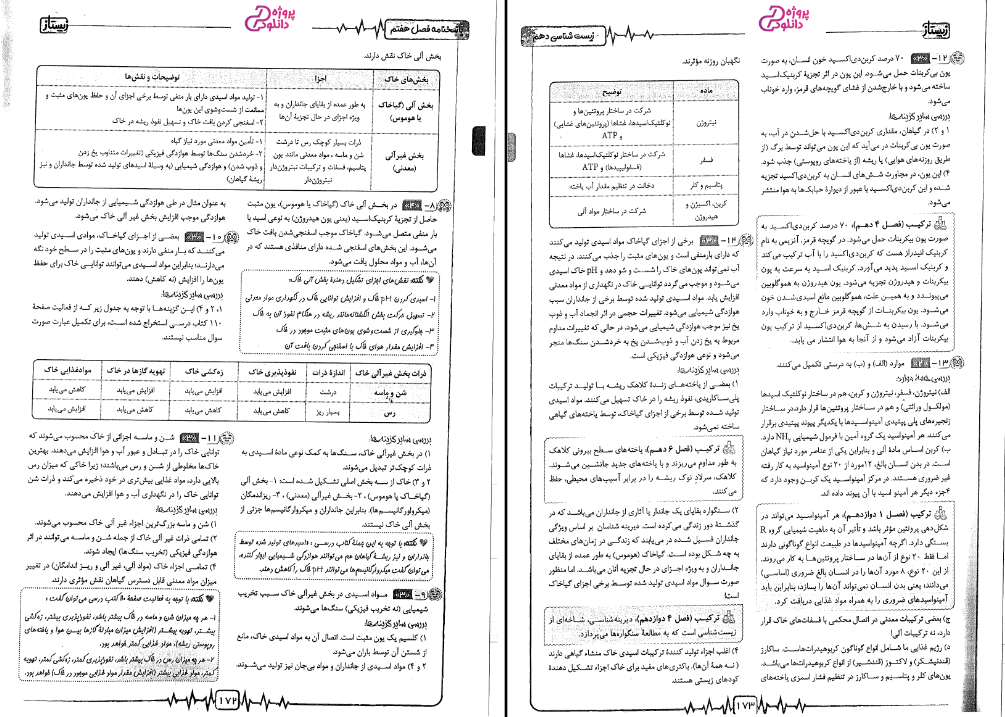 زیست‌شناسی دهم
زیستاژ
پروژه
دانلود
۱۲- ۷۰ درصد کربن‌دی‌اکسید خون انسان، به صورت
یون بی‌کربنات حمل می‌شود. این یون در اثر تجزیه کربنیک‌اسید
ساخته می‌شود و با خارج‌شدن از فضای گویچه‌های قرمز، وارد خوناب
می‌شود.
بررسی سایر گزینه‌ها:
۱ و ۲) در گیاهان، مقداری کربن‌دی‌اکسید با حل‌شدن در آب، به
صورت یون بی‌کربنات در می‌آید که این یون می‌تواند توسط برگ (از
طریق روزنه‌های هوایی) یا ریشه (از یاخته‌های روپوستی) جذب شود.
۴) این یون، در مجاورت شش‌های انسان به کربن‌دی‌اکسید تجزیه
شده و این کربن‌دی‌اکسید با عبور از دیوارهٔ حبابک‌ها به هوا منتشر
می‌شود.
ترکیب (فصل ۴ دهم): ۷۰ درصد کربن‌دی‌اکسید به
صورت یون بیکربنات حمل می‌شود. در گویچه قرمز، آنزیمی به نام
کربنیک انیدراز هست که کربن‌دی‌اکسید را با آب ترکیب می‌کند
و کربنیک اسید پدید می‌آورد. کربنیک اسید به سرعت به یون
بیکربنات و هیدروژن تجزیه می‌شود. یون هیدروژن به هموگلوبین
می‌پیوندد و به همین علت، هموگلوبین مانع اسیدی‌شدن خون
می‌شود. یون بیکربنات از گویچه قرمز خارج و به خوناب وارد
می‌شود. با رسیدن به شش‌ها، کربن‌دی‌اکسید از ترکیب یون
بیکربنات آزاد می‌شود و از آنجا به هوا انتشار می یابد.
۱۳- موارد (الف) و (ب) به درستی تکمیل می‌کنند.
بررسی همهٔ موارد:
الف) نیتروژن، فسفر، نیتروژن و کربن، هم در ساختار نوکلئیک اسیدها
(مولکول وراثتی) و هم در ساختار پروتئین‌ها قرار دارد.در ساختار
زنجیره‌های پلی پپتیدی آمینواسیدها با یکدیگر پیوند پپتیدی برقرار
می‌کنند. هر آمینواسید یک گروه آمین با فرمول شیمیایی NH₂ دارد.
ب) کربن اساس مادهٔ آلی و بنابراین یکی از عناصر مورد نیاز گیاهان
است. در بدن انسان بالغ، ۱۲مورد از ۲۰ نوع آمینواسید به کار رفته
غیر ضروری هستند. در مرکز آمینواسید یک کربن وجود دارد که
۴جزء دیگر هر آمینو اسید با آن پیوند داده اند.
ترکیب (فصل ۱ دوازدهم): هر آمینواسید می‌تواند در
شکل‌دهی پروتئین مؤثر باشد و تأثیر آن به ماهیت شیمیایی گروه R
بستگی دارد. اگرچه آمینواسیدها در طبیعت انواع گوناگونی دارند
اما فقط ۲۰ نوع از آن‌ها در ساختار پروتئین‌ها به کار می‌روند.
از این ۲۰ نوع، ۸ مورد آن‌ها را در انسان بالغ ضروری (اساسی)
می‌دانند؛ یعنی بدن انسان نمی‌تواند آن‌ها را بسازد؛ بنابراین باید
آمینواسیدهای ضروری را به همراه مواد غذایی دریافت کرد.
ج) بعضی ترکیبات معدنی در اتصال محکمی با فسفات‌های خاک قرار
دارد، نه ترکیبات آلی!
د) رژیم غذایی ما شامل انواع گوناگون کربوهیدرات‌هاست. ساکارز
(قندنیشکر) و لاکتوز (قندشیر) از انواع کربوهیدرات‌ها می‌باشد.
یون‌های کلر و پتاسیم، و ساکارز در تنظیم فشار اسمزی یاخته‌های
نگهبان روزنه مؤثرند.
ماده توضیح
نیتروژن شرکت در ساختار پروتئین‌ها و
نوکلئیک‌اسیدها، غشاها (پروتئین‌های غشایی)
و ATP
فسفر شرکت در ساختار نوکلئیک‌اسیدها، غشاها
(فسفولیپیدها) و ATP
پتاسیم و کلر دخالت در تنظیم مقدار آب یاخته
کربن، اکسیژن و هیدروژن شرکت در ساختار مواد آلی
۱۴- برخی از اجزای گیاخاک مواد اسیدی تولید می‌کنند
که دارای بارمنفی است و یون‌های مثبت را جذب می‌کنند. در نتیجه
آب نمی‌تواند یون‌های خاک را شست و شو دهد و pH خاک اسیدی
می‌شود و موجب می‌گردد توانایی خاک در نگهداری از مواد معدنی
افزایش یابد. مواد اسیدی تولید شده توسط برخی از جانداران سبب
هوازدگی شیمیایی می‌شود. تغییرات حجمی در اثر انجماد آب و ذوب
یخ نیز موجب هوازدگی شیمیایی می‌شود، در حالی که تغییرات مداوم
مربوط به یخ زدن آب و ذوب‌شدن یخ به خردشدن سنگ‌ها منجر
می‌شود و نوعی هوازدگی فیزیکی است.
بررسی سایر گزینه‌ها:
۱) بعضی از یاخته‌های زندهٔ کلاهک ریشه با تولید ترکیبات
پلی‌ساکاریدی، نفوذ ریشه در خاک تسهیل می‌کنند. مواد اسیدی
تولید شده توسط برخی از اجزای گیاخاک، توسط یاخته‌های گیاهی
ساخته نمی‌شود.
ترکیب (فصل ۶ دهم): یاخته‌های سطح بیرونی کلاهک
به طور مداوم می‌ریزند و با یاخته‌های جدید جانشین می‌شوند.
کلاهک، سرلاد نوک ریشه را در برابر آسیب‌های محیطی، حفظ
می کنند.
۲) سنگواره بقایای یک جاندار یا آثاری از جانداران می‌باشد که در
گذشتهٔ دور زندگی می‌کرده است. دیرینه شناسان بر اساس ویژگی
جانداران فسیل شده در می‌یابند که زندگی در زمان‌های مختلف
به چه شکل بوده است. گیاخاک (هوموس) به طور عمده از بقایای
جانداران و به ویژه اجزای در حال تجزیه آنان می‌باشد. اما منظور
صورت سوال مواد اسیدی تولید شده توسط برخی اجزای گیاخاک
است!
ترکیب (فصل ۴ دوازدهم): دیرینه‌شناسی، شاخه‌ای از
زیست‌شناسی است که به مطالعهٔ سنگواره‌ها می‌پردازد.
۴) اغلب اجزاء تولید کنندهٔ ترکیبات اسیدی خاک منشاء گیاهی دارند
( نه همهٔ آن‌ها). باکتری‌های مفید برای خاک اجزاء تشکیل دهندهٔ
کودهای زیستی هستند.
۱۷۳
پاسخنامه فصل هفتم
زیستاژ
پروژه
دانلود
بخش آلی خاک نقش دارند.
بخش‌های خاک اجزا توضیحات و نقش‌ها
بخش آلی (گیاخاک یا هوموس) به طور عمده از بقایای جانداران و به ویژه اجزای در حال تجزیهٔ آن‌ها
۱- تولید مواد اسیدی دارای بار منفی توسط برخی اجزای آن و حفظ یون‌های مثبت و
ممانعت از شست‌وشوی این یون‌ها
۲- اسفنجی کردن بافت خاک و تسهیل نفوذ ریشه در خاک
بخش غیرآلی (معدنی) ذرات بسیار کوچک رس تا درشت
شن و ماسه ، مواد معدنی مانند یون
پتاسیم، فسفات و ترکیبات نیتروژن‌دار
۱- تأمین مواد معدنی مورد نیاز گیاه
۲- خردشدن سنگ‌ها توسط هوازدگی فیزیکی (تغییرات متناوب یخ زدن
و ذوب شدن) و هوازدگی شیمیایی (به وسیلهٔ اسیدهای تولید شده توسط جانداران و نیز
ریشهٔ گیاهان)
۸- در بخش آلی خاک (گیاخاک یا هوموس)، یون مثبت
حاصل از تجزیهٔ کربنیک‌اسید (یعنی یون هیدروژن) به نوعی اسید با
بار منفی متصل می‌شود. گیاخاک موجب اسفنجی‌شدن بافت خاک
می‌شود. این بخش‌های اسفنجی شده دارای منافذی هستند که در
آن‌ها، آب و مواد محلول یافت می‌شود.
نکته: نقش‌های اجزای تشکیل دهندهٔ بخش آلی خاک:
۱- اسیدی کردن pH خاک و افزایش توانایی خاک در نگهداری مواد معدنی
۲- تسهیل حرکت بخش انگشتانه‌مانند ریشه در هنگام نفوذ آن به خاک
۳- جلوگیری از شست‌وشوی یون‌های مثبت موجود در خاک
۴- افزایش مقدار هوای خاک با اسفنجی کردن بافت آن
به عنوان مثال در طی هوازدگی شیمیایی از جانداران تولید می‌شود.
هوازدگی موجب افزایش بخش غیر آلی خاک می‌شود.
۱۰- بعضی از اجزای گیاخاک، موادی اسیدی تولید
می‌کنند که بار منفی دارند و یون‌های مثبت را در سطح خود نگه
می‌دارند؛ بنابراین مواد اسیدی می‌توانند توانایی خاک برای حفظ
یون‌ها را افزایش (نه کاهش) دهند.
بررسی سایر گزینه‌ها:
۱، ۲ و ۴) این گزینه‌ها با توجه به جدول زیر که از فعالیت صفحهٔ
۱۱۰ کتاب درسی استخراج شده است، برای تکمیل عبارت صورت
سوال مناسب نیستند.
ذرات بخش غیر آلی خاک اندازهٔ ذرات نفوذپذیری خاک زه‌کشی خاک تهویه گازها در خاک موادغذایی خاک
شن و ماسه درشت افزایش می‌یابد افزایش می‌یابد افزایش می‌یابد کاهش می‌یابد
رس بسیار ریز کاهش می‌یابد کاهش می‌یابد کاهش می‌یابد افزایش می‌یابد
بررسی سایر گزینه‌ها:
۱) در بخش آلی خاک، سنگ‌ها به کمک نوعی مادهٔ اسیدی به
ذرات کوچک‌تر تبدیل می‌شوند.
۲ و ۳) خاک از سه بخش اصلی تشکیل شده است: ۱- بخش آلی
(گیاخاک یا هوموس) ، ۲- بخش غیرآلی (معدنی) ، ۳- ریزاندمگان
(میکرواورگانیسم‌ها)، بنابراین جانداران و میکروارگانیسم‌ها جزئی از
بخش آلی خاک نیستند.
نکته: با توجه به این جملهٔ کتاب درسی: «اسیدهای تولید شده توسط
جانداران و نیز ریشهٔ گیاهان هم می‌توانند هوازدگی شیمیایی ایجاد کنند»،
می‌توان گفت میکروارگانیسم‌ها می‌توانند pH خاک را کاهش دهند.
۹- مواد اسیدی در بخش غیرآلی خاک سبب تخریب
شیمیایی (نه تخریب فیزیکی) سنگ‌ها می‌شوند.
بررسی سایر گزینه‌ها:
۱) کلسیم یک یون مثبت است. اتصال آن به مواد اسیدی خاک، مانع
از شستن آن توسط باران می‌شود.
۲ و ۴) مواد اسیدی از جانداران و مواد بی‌جان نیز تولید می‌شوند.
۱۱- شن و ماسه اجزائی از خاک محسوب می‌شوند که
توانایی خاک را در تبادل و عبور آب و هوا افزایش می‌دهند. بهترین
خاک‌ها مخلوطی از شن و رس می‌باشند؛ زیرا خاکی که میزان رس
بالایی دارد، مواد غذایی بیش‌تری در خود ذخیره می‌کند و ذرات شن
توانایی خاک را در نگهداری آب و هوا افزایش می‌دهند.
بررسی سایر گزینه‌ها:
۱) شن و ماسه بزرگ‌ترین اجزاء غیر آلی خاک محسوب می‌شوند.
۲) تمامی ذرات غیر آلی خاک از جمله شن و ماسه می‌توانند در اثر
هوازدگی فیزیکی (تخریب سنگ‌ها) ایجاد شوند.
۴) تمامی اجزاء خاک (مواد آلی، غیر آلی و ریز اندامگان) در تغییر
میزان مواد معدنی قابل دسترس گیاهان نقش مؤثری دارند.
۱- هر چه میزان شن و ماسه در خاک بیشتر باشد، نفوذپذیری بیشتر، زه‌کشی
۱۷۲